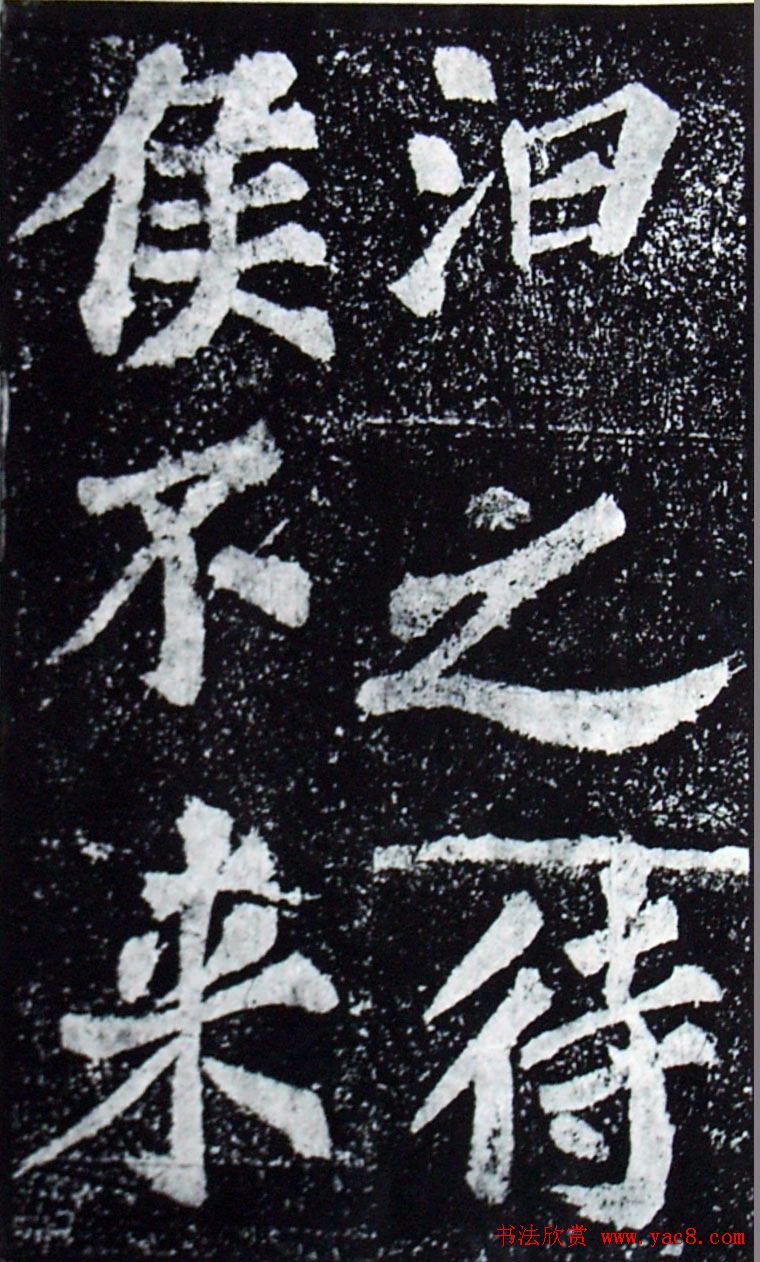 泊之待
侯不来
书法欣赏 www.yac8.com